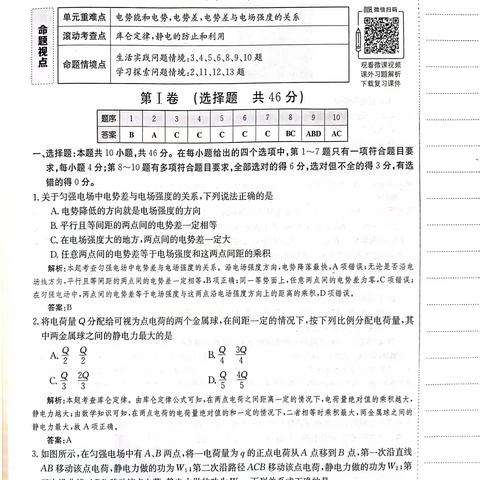 命题视点
单元重难点 电势能和电势,电势差,电势差与电场强度的关系
滚动考查点 库仑定律,静电的防止和利用
命题情境点 生活实践问题情境:3、4、5、6、8、9、10 题
学习探索问题情境:2、11、12、13 题
微信扫码
观看微课视频
课外习题解析
下载复习课件
第Ⅰ卷 (选择题 共 46 分)
题序 1 2 3 4 5 6 7 8 9 10
答案 B A C C C C C BC ABD AC
一、选择题:本题共 10 小题,共 46 分。在每小题给出的四个选项中,第 1～7 题只有一项符合题目要
求,每小题 4 分;第 8～10 题有多项符合题目要求,全部选对的得 6 分,选对但不全的得 3 分,有选
错的得 0 分。
1. 关于匀强电场中电势差与电场强度的关系,下列说法正确的是
A. 电势降低的方向就是电场强度的方向
B. 平行且等间距的两点间的电势差一定相等
C. 在电场强度大的地方,两点间的电势差一定大
D. 任意两点间的电势差等于电场强度和这两点间距的乘积
解析:本题考查匀强电场中电势差与电场强度的关系。沿电场强度方向,电势降落最快,A 项错误;无论是否沿电
场线方向,平行且等间距的两点间的电势差一定相等,B 项正确;同一等势面上,任意两点间的电势差为零,C 项错误;
在匀强电场中,两点间的电势差等于电场强度与这两点沿电场强度方向上的距离的乘积,D 项错误。
答案:B
2. 将电荷量 Q 分配给可视为点电荷的两个金属球,在间距一定的情况下,按下列比例分配电荷量,其
中两金属球之间的静电力最大的是
A. Q/2 Q/2 B. Q/4 3Q/4
C. Q/3 2Q/3 D. Q/5 4Q/5
解析:本题考查库仑定律。由库仑定律公式可知,在两点电荷之间距离一定的情况下,电荷量绝对值的乘积越大,
静电力越大;由数学知识可知,在两点电荷的电荷量绝对值的和一定的情况下,二者相等时乘积最大,两金属球之间的
静电力最大,故 A 项正确。
答案:A
3. 如图所示,在匀强电场中有 A、B 两点,将一电荷量为 q 的正点电荷从 A 点移到 B 点,第一次沿直线
AB 移动该点电荷,静电力做的功为 W₁;第二次沿路径 ACB 移动该点电荷,静电力做的功为 W₂;第